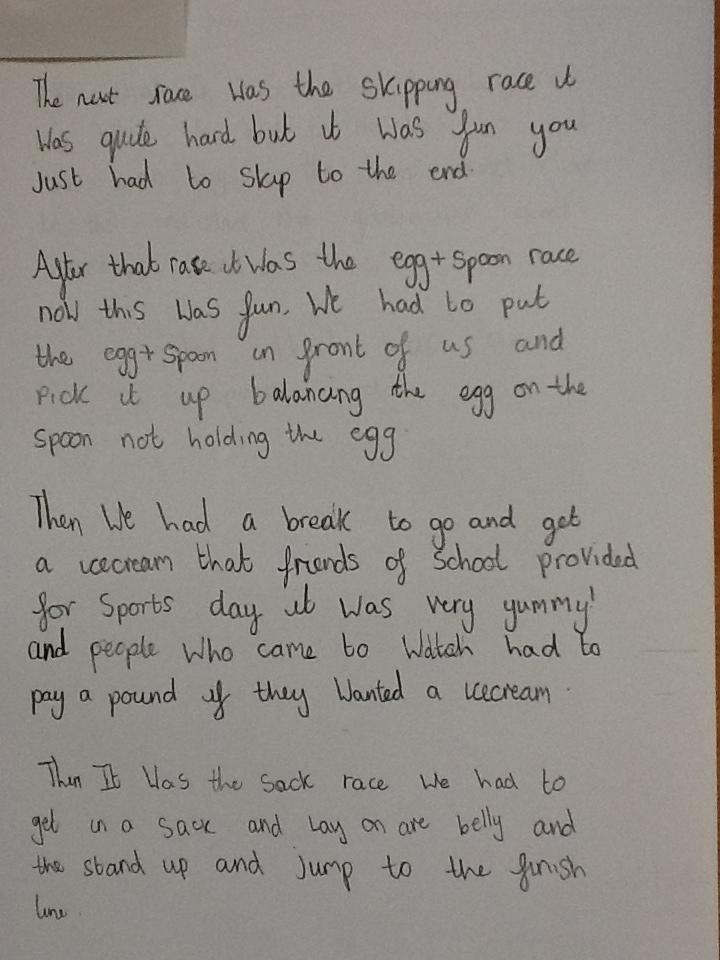 The next race Was the Skipping race it
Was quite hard but it Was fun you
Just had to Skip to the end.
After that rase it Was the egg+Spoon race
now this Was fun. We had to put
the egg+Spoon in front of us and
Pick it up balancing the egg on the
Spoon not holding the egg.
Then We had a break to go and get
a icecream that friends of School provided
for Sports day it Was very yummy!
and people Who came to Watch had to
pay a pound if they Wanted a icecream.
Then It Was the Sack race We had to
get in a Sack and Lay on are belly and
the stand up and Jump to the finish
line.